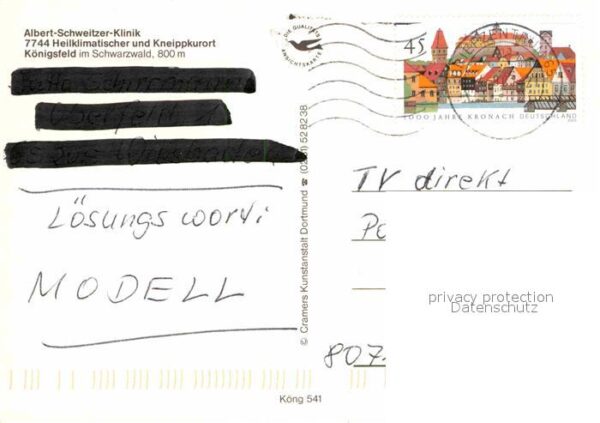 Albert-Schweitzer-Klinik
7744 Heilklimatischer und Kneippkurort
Königsfeld im Schwarzwald, 800 m
DIE QUALITÄTS
ANSICHTSKARTE
45
1000 JAHRE KRONACH DEUTSCHLAND
BRIEFZENTRUM
Lösungswort:
MODELL
© Cramers Kunstanstalt Dortmund ☎ (0231) 528238
TV direkt
807
privacy protection
Datenschutz
Köng 541